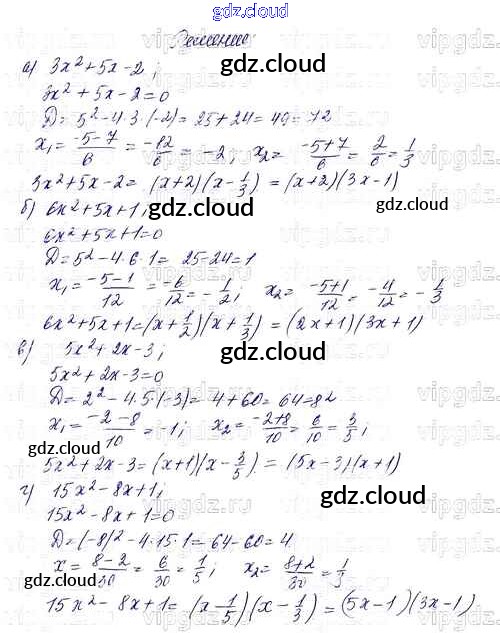 gdz.cloud
gdz.cloud
Решение
а) 3x²+5x-2;
3x²+5x-2=0
D=5²-4·3·(-2)=25+24=49=72
x₁=(-5-7)/6=-12/6=-2; x₂=(-5+7)/6=2/6=1/3
3x²+5x-2=(x+2)(x-1/3)=(x+2)(3x-1)
gdz.cloud
б) 6x²+5x+1;
6x²+5x+1=0
gdz.cloud
D=5²-4·6·1=25-24=1
x₁=(-5-1)/12=-6/12=-1/2; x₂=(-5+1)/12=-4/12=-1/3
6x²+5x+1=(x+1/2)(x+1/3)=(2x+1)(3x+1)
в) 5x²+2x-3;
gdz.cloud
5x²+2x-3=0
D=2²-4·5(-3)=4+60=64=82
x₁=(-2-8)/10=-1; x₂=(-2+8)/10=6/10=3/5;
gdz.cloud
5x²+2x-3=(x+1)(x-3/5)=(5x-3)(x+1)
г) 15x²-8x+1;
gdz.cloud
15x²-8x+1=0
D=(-8)²-4·15·1=64-60=4
x=(8-2)/30=6/30=1/5; x₂=(8+2)/30=1/3
gdz.cloud
15x²-8x+1=(x-1/5)(x-1/3)=(5x-1)(3x-1)